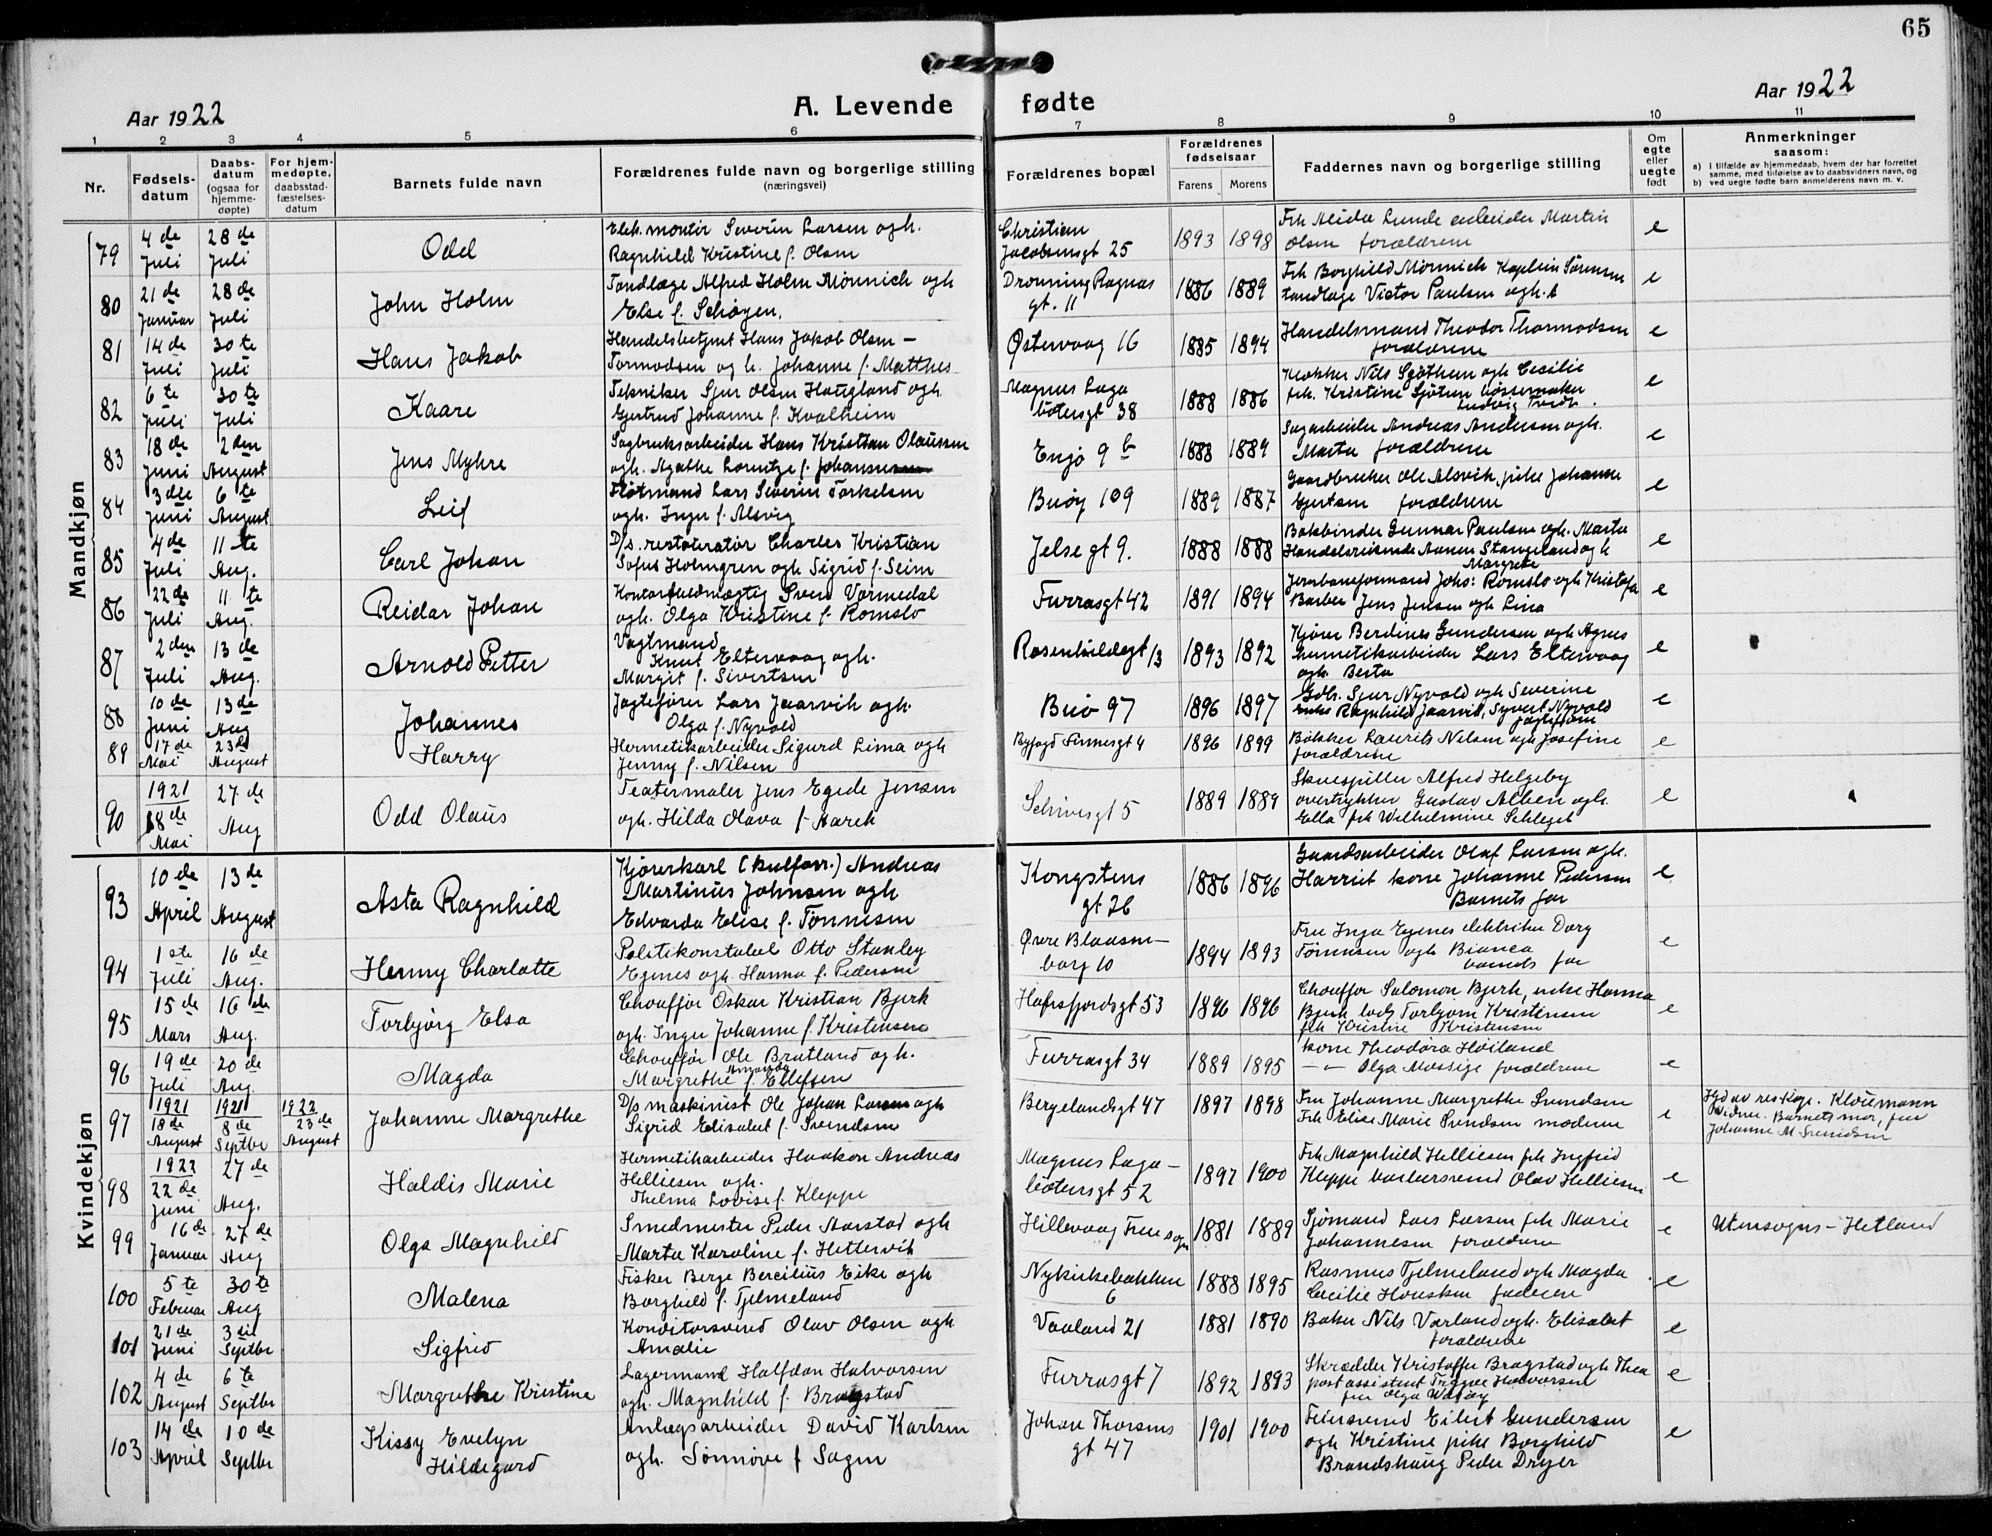 65
Aar 1922
A. Levende fødte
Aar 1922
1 2 3 4 5 6 7 8 9 10 11
Nr.
Fødsels-
datum
Daabs-
datum
(ogsaa for
hjemme-
døpte)
For hjem-
medøpte,
daabsstad-
fæstelses-
datum
Barnets fulde navn
Forældrenes fulde navn og borgerlige stilling
(næringsvei)
Forældrenes bopæl
Forældrenes
fødselsaar
Farens Morens
Faddernes navn og borgerlige stilling
Om
egte
eller
uegte
født
Anmerkninger
saasom:
a) i tilfælde av hjemmedaab, hvem der har forrettet
samme, med tilføielse av to daabsvidners navn, og
b) ved uegte fødte barn anmelderens navn m. v.
Mandkjøn
79
4de Juli
28de Juli
Odd
Elek. montør Severin Larsen ogh.
Ragnhild Kristine f. Olsen
Christian
Jacobsensgt 25
1893 1898
Frk Alida Lunde arbeider Martin
Olsen forældrene
e
80
21de Januar
28de Juli
John Holm
Tandlæge Alfred Holm Mønnich ogh
Else f. Schøyen.
Dronning Ragnas
gt. 11
1886 1889
Frk Borghild Mönnich Kaptein Sørensen
tandlæge Victor Paulsen ogh.
e
81
14de Juli
30te Juli
Hans Jakob
Handelsbetjent Hans Jakob Olsen –
Tormodsen og h. Johanne f. Matthes
Østervaag 16
1885 1894
Handelsmand Theodor Thormodsen
forældrene
e
82
6te Juli
30te Juli
Kaare
Tekniker Sjur Olsen Haugland ogh
Gjertrud Johanne f. Kvalheim
Magnus Laga
bøtersgt 38
1888 1886
Klokker Nils Sjøthun ogh Cecilie
frk. Kristine Sjötun bøssemaker
Ludvig
e
83
18de Juni
2den August
Jens Myhre
Sagbruksarbeider Hans Kristian Olaussen
ogh. Agathe f. Johannesen
Engø 9 b
1888 1889
Sagarbeider Andreas Andersen ogh.
Marta forældrene
e
84
3die Juni
6te August
Leif
Fløtmand Lars Severin Torkelsen
ogh. Inger f. Alsvig
Buøy 109
1889 1887
Gaardbruker Ole Alsvik, pike Johanne
Gjertsen forældrene
e
85
4de Juli
11-te Aug.
Carl Johan
D/s. restauratør Charles Kristian
Sofus Holmgren ogh Sigrid f. Seim
Jelsegt 9.
1888 1888
Bokbinder Gunnar Paulsen ogh. Marta
Handelsreisende Stangeland ogh
Margrete
e
86
22de Juli
11te Aug.
Reidar Johan
Kontorfuldmægtig Svend Varmedal
ogh. Olga Kristine f. Romslo
Furrasgt 42
1891 1894
Jernbaneformand Johs: Romslo ogh Kristofa
Barber Jens Jensen ogh Lina
e
87
2den Juli
13de Aug.
Arnold Petter
Vagtmand
Knut Eltervaag ogh.
Margit f. Sivertsen
Rosenkildegt 13
1893 1892
Kjører Berdines Gundersen ogh Agnes
hermetikarbeider Lars Eltervaag
ogh Berta
e
88
10de Juni
13de Aug
Johannes
Jagtefører Lars Jaarvik ogh.
Olga f. Nyvold
Buø 97
1896 1897
Gdb. Sjur Nyvold ogh Severine
enke Ragnhild Jaarvik, Syvert Nyvold
e
89
17de Mai
23de August
Harry
Hermetikarbeider Sigurd Lima ogh
Jenny f. Nilsen
Byfogd 4
1896 1899
Bøkker Laurits Nilsen ogh Josefine
forældrene
e
90
1921
18de Mai
27de Aug
Odd Olaus
Teatermaler Jens Egede Jensen
ogh. Hilda Olava f. Aarek
5
1889 1889
Skuespiller Alfred Helgeby
overtrykker Gustav Alben ogh.
Ella frk Wilhelmine Schlegel
e
Kvindekjøn
93
10de April
13de August
Asta Ragnhild
Kjørerkarl (kulforr.) Andreas
Martinus Johnsen ogh
Edvarda Elise f. Tönnesen
Kongstens
gt 26
1886 1896
Gaardsarbeider Olaf Larsen ogh.
Harriet kone Johanne Pedersen
Barnets far
e
94
1ste Juli
16de Aug.
Henny Charlotte
Politikonstabel Otto Stanley
Egenes ogh. Hanna f. Pedersen
Øvre Blaasen-
borg 10
1894 1893
Fru Inga Egenes elektriker Dorg
Tönnesen ogh Bianca
barnets far
e
95
15de Mars
16de Aug.
Torbjørg Elsa
Chouffør Oskar Kristian Bjerk
ogh. Inger Johanne f. Kristensen
Hafrsfjordsgt 53
1896 1896
Chouffør Salomon Bjerk, enke Hanna
Bjerk lods Torbjørn Kristensen
frk Kristine Kristensen
e
96
19de Juli
20de Aug.
Magda
Chouffør Ole Bratland ogh.
Margrethe Amanda f. Ellefsen
Furrasgt 34
1889 1895
kone Theodora Höiland
– " – Olga Mossige forældrene
e
97
1921
18de August
1921
8de Septbr
1922
23de August
Johanne Margrethe
D/s maskinist Ole Johan Larsen ogh
Sigrid Elisabet f. Svendsen
Bergelandsgt 47
1897 1898
Fru Johanne Margrethe Svendsen
Frk Elise Marie Svendsen moderen
e
Hjd av res Kap. Kloumann
Vidner Barnets mor, fru
Johanne M. Svendsen
98
1922
22de Juni
27de Aug.
Haldis Marie
Hermetikarbeider Haakon Andreas
Helliesen ogh.
Thelma Lovise f. Kleppe
Magnus Laga-
bötersgt 52
1897 1900
Frk Magnhild Helliesen frk Ingfrid
Kleppe barbersvend Olav Helliesen
e
99
16de Januar
27de Aug
Olga Magnhild
Smedmester Peder Aarstad ogh
Marta Karoline f. Hettervik
Hillevaag Frue sogn
1881 1889
Sjømand Lars Larsen frk Marie
Johannesen forældrene
e
Utensogns – Hetland
100
5te Februar
30te Aug
Malena
Fisker Berge Bercilius Eike ogh
Borghild f. Tjelmeland
Nykirkebakken
6
1888 1895
Rasmus Tjelmeland ogh Magda
Cecilie Hausken faderen
e
101
21de Juni
3die Septbr
Sigfrid
Konditorsvend Olav Olsen ogh
Amalie
Vaaland 21
1881 1890
Baker Nils Varland ogh. Elisabet
forældrene
e
102
4de August
6te Septbr
Margrethe Kristine
Lagermand Halfdan Halvorsen
ogh. Magnhild f. Bragstad
Furrasgt 7
1892 1893
Skrædder Kristoffer Bragstad ogh Thea
postassistent Trygve Halvorsen
fru Olga
e
103
14de April
10de Septbr
Kissy Evelyn
Hildegard
Anlægsarbeider David Karlsen
ogh. Sønnøve f Sagen
Johan Thorsens
gt 47
1901 1900
Feiersvend Eilert Gundersen
ogh Kristine pike Borghild
Brandshaug Peder Dryer
e